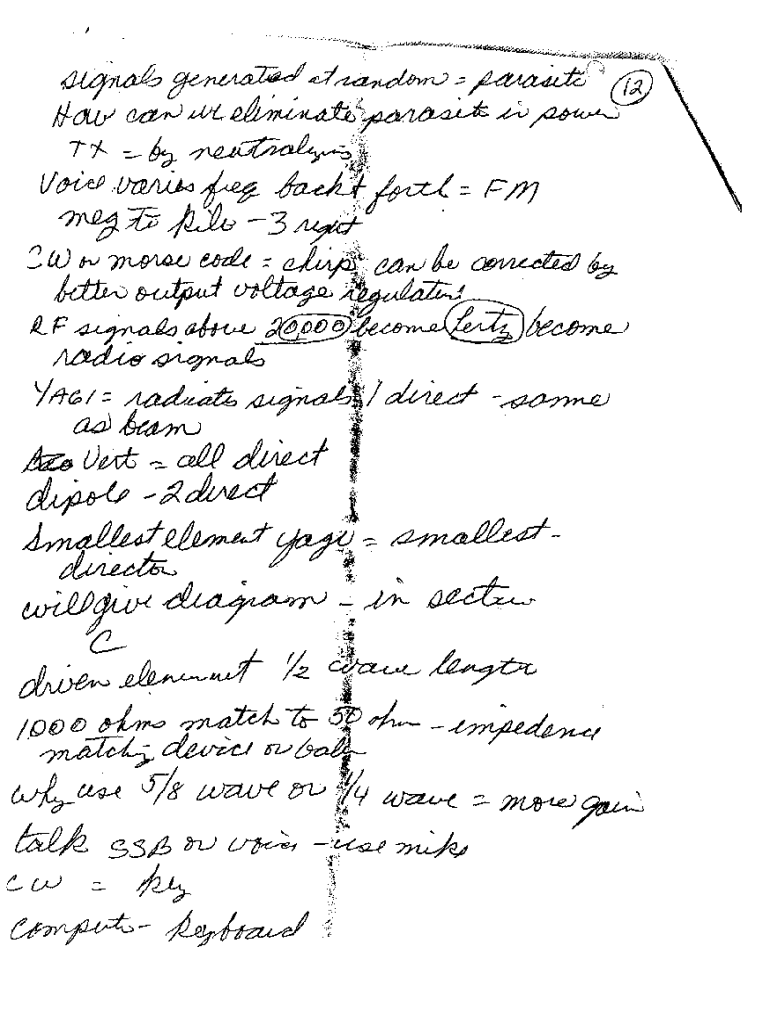 signals generated at random = parasite
(12)
How can we eliminate parasite in power
TX = by neutralizing
Voice varies freq back & forth = FM
meg to kilo - 3 right
CW or morse code = chirp can be corrected by
better output voltage regulation
RF signals above 20,000 become Hertz become
radio signals
YAGI = radiate signals 1 direct - same
as beam
Vert = all direct
dipole - 2 direct
Smallest element yagi = smallest -
director
will give diagram - in section
C
driven element 1/2 wave length
1000 ohms match to 50 ohm - impedence
matching device or balun
why use 5/8 wave or 1/4 wave = more gain
talk SSB or voice - use mike
CW = key
computer - keyboard